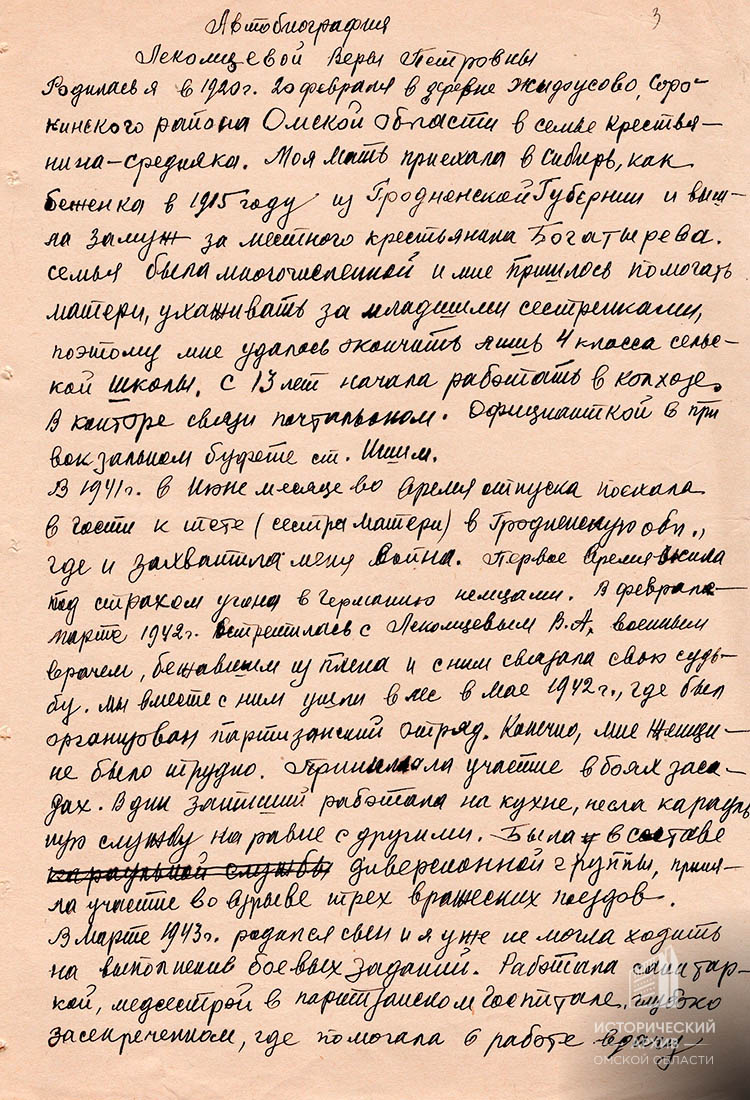 3
Автобиография
Лекомцевой Веры Петровны
Родилась я в 1920г. 20 февраля в деревне Жидоусово, Соро-
кинского района Омской области в семье крестья-
нина-средняка. Моя мать приехала в Сибирь, как
беженка в 1915 году из Гродненской Губернии и выш-
ла замуж за местного крестьянина Богатырева.
семья была многочисленной и мне пришлось помогать
матери, ухаживать за младшими сестренками,
поэтому мне удалось окончить лишь 4 класса сель-
кой школы. С 13 лет начала работать в колхозе.
В конторе связи почтальоном. Официанткой в при
вокзальном буфете ст. Ишим.
В 1941г. в Июне месяце во время отпуска поехала
в гости к тете (сестра матери) в Гродненскую обл.,
где и захватила меня война. Первое время жила
под страхом угона в Германию немцами. В феврале-
марте 1942г. встретилась с Лекомцевым В.А, военным
врачем, бежавшим из плена и с ним связала свою судь-
бу. мы вместе с ним ушли в лес в мае 1942г., где был
организован партизанский отряд. Конечно, мне женщи-
не было трудно. Принимала участие в боях заса-
дах. В дни затиший работала на кухне, несла карауль
ную службу на равне с другими. Была и в составе
караульной службы диверсионной группы, приня-
ла участие во взрыве трех вражеских поездов.
В марте 1943г. родился сын и я уже не могла ходить
на выполнение боевых заданий. Работала санитар-
кой, медсестрой в партизанском госпитале, глубоко
засекреченном, где помогала в работе
ИСТОРИЧЕСКИЙ
АРХИВ
ОМСКОЙ ОБЛАСТИ